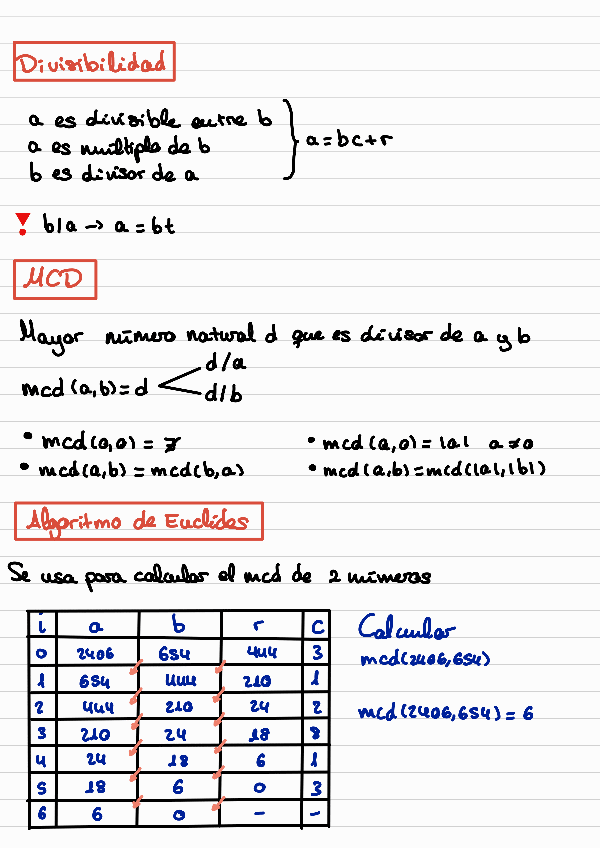 Divisibilidad
a es divisible entre b
a es múltiplo de b
b es divisor de a
a = bc + r
! b/a → a = bt
MCD
Mayor número natural d que es divisor de a y b
mcd (a,b) = d
d/a
d/b
• mcd(0,0) = ∄
• mcd(a,0) = |a| a≠0
• mcd(a,b) = mcd(b,a)
• mcd(a,b) = mcd(|a|,|b|)
Algoritmo de Euclides
Se usa para calcular el mcd de 2 números
i a b r c
0 2406 654 444 3
1 654 444 210 1
2 444 210 24 2
3 210 24 18 8
4 24 18 6 1
5 18 6 0 3
6 6 0 - -
Calcular
mcd(2406,654)
mcd(2406,654) = 6